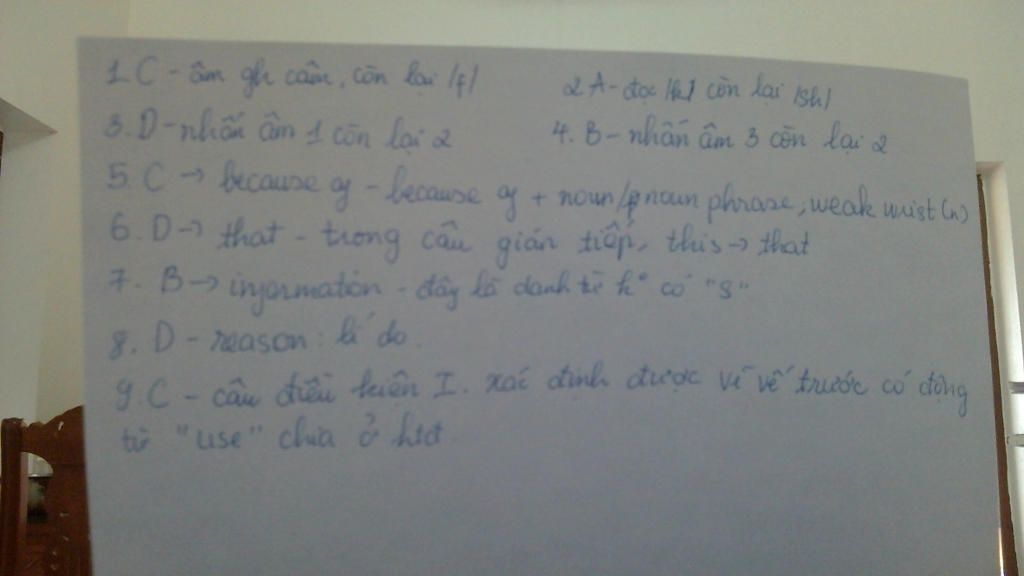 1. C - âm gh câm, còn lại /f/
2 A - đọc /k/ còn lại /sh/
3. D - nhấn âm 1 còn lại 2
4. B - nhấn âm 3 còn lại 2
5. C → because of - because of + noun/pnoun phrase, weak wrist (n)
6. D → that - trong câu gián tiếp, this → that
7. B → information - đây là danh từ ko có "s"
8. D - reason: lí do.
9. C - câu điều kiện I. xác định được vì vế trước có động
từ "use" chia ở htđ.